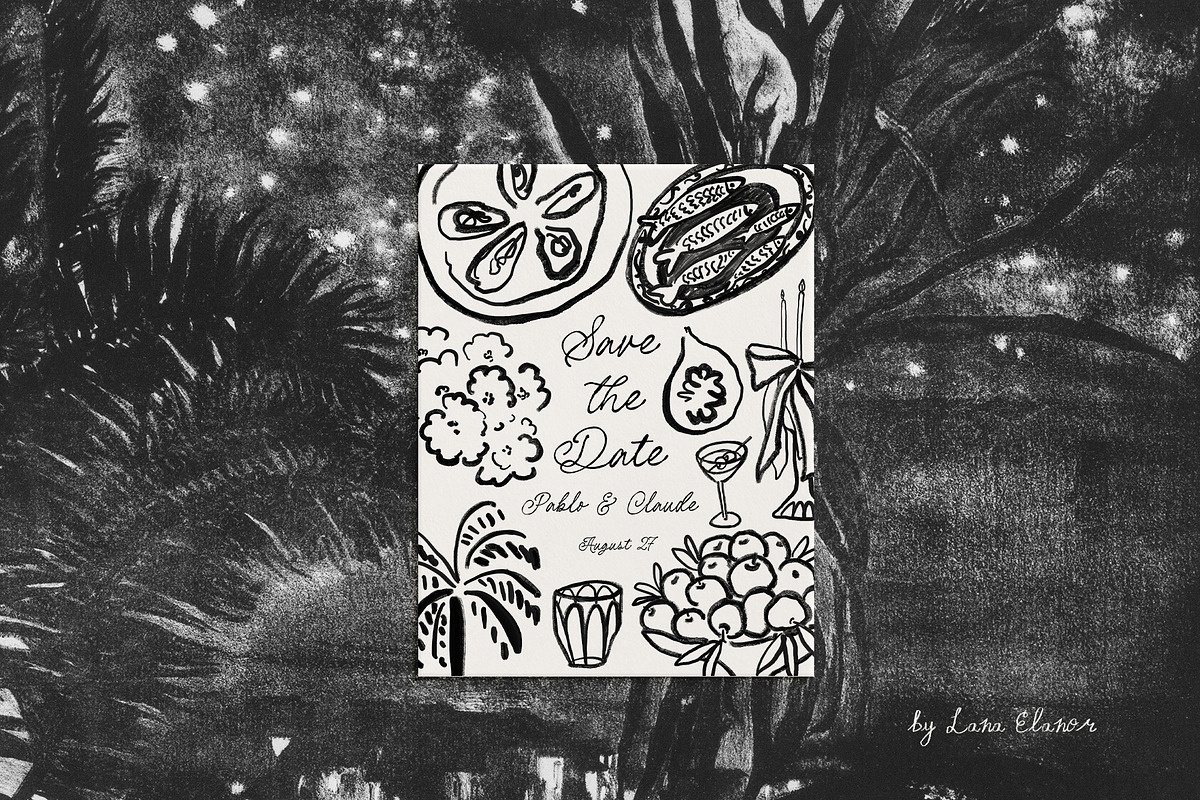 Save
the
Date
Pablo & Claude
August 27
by Lana Elanor